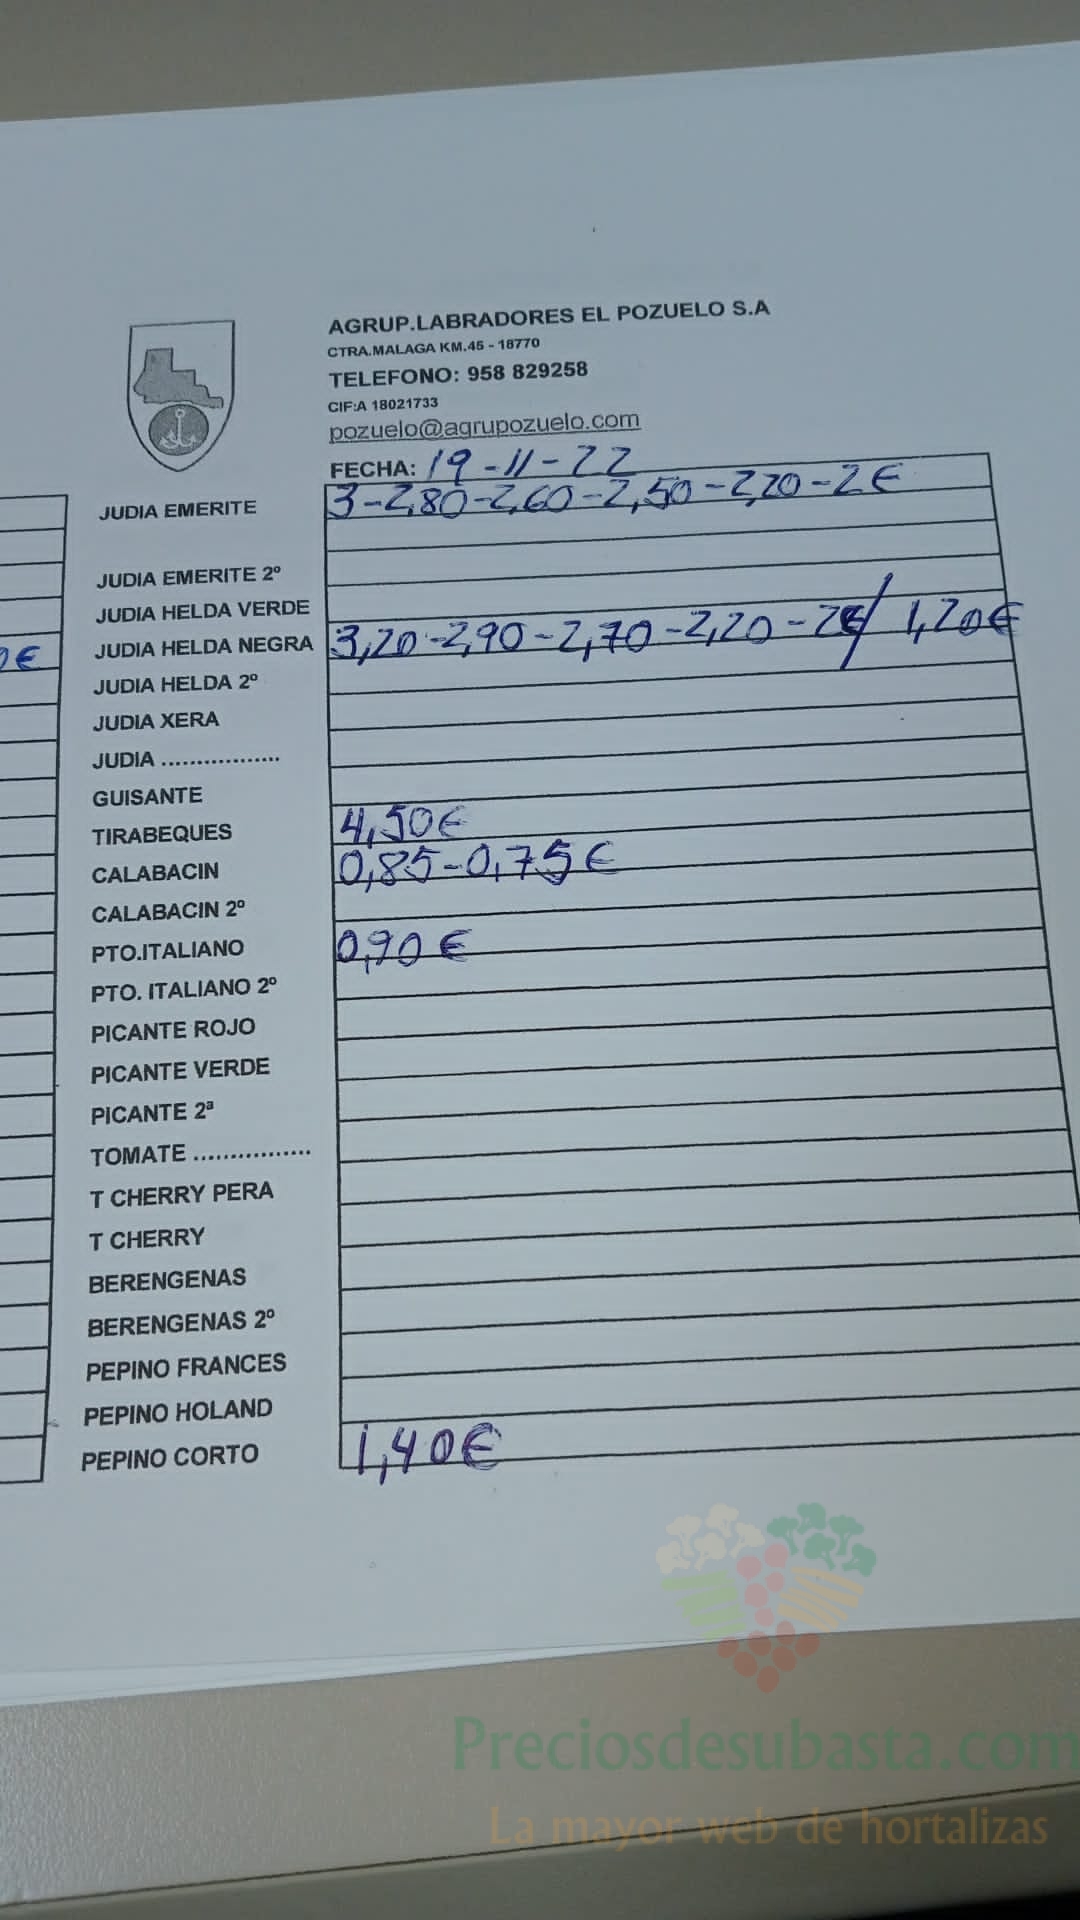 AGRUP.LABRADORES EL POZUELO S.A
CTRA.MALAGA KM.45 - 18770
TELEFONO: 958 829258
CIF:A 18021733
pozuelo@agrupozuelo.com
FECHA: 19-11-22
JUDIA EMERITE 3-2,80-2,60-2,50-2,20-2€
JUDIA EMERITE 2º
JUDIA HELDA VERDE
JUDIA HELDA NEGRA 3,20-2,90-2,70-2,20-2€/ 1,20€
0€
JUDIA HELDA 2º
JUDIA XERA
JUDIA .................
GUISANTE
TIRABEQUES 4,50€
CALABACIN 0,85-0,75€
CALABACIN 2º
PTO.ITALIANO 0,90€
PTO. ITALIANO 2º
PICANTE ROJO
PICANTE VERDE
PICANTE 2ª
TOMATE ................
T CHERRY PERA
T CHERRY
BERENGENAS
BERENGENAS 2º
PEPINO FRANCES
PEPINO HOLAND
PEPINO CORTO 1,40€
Preciosdesubasta.com
La mayor web de hortalizas